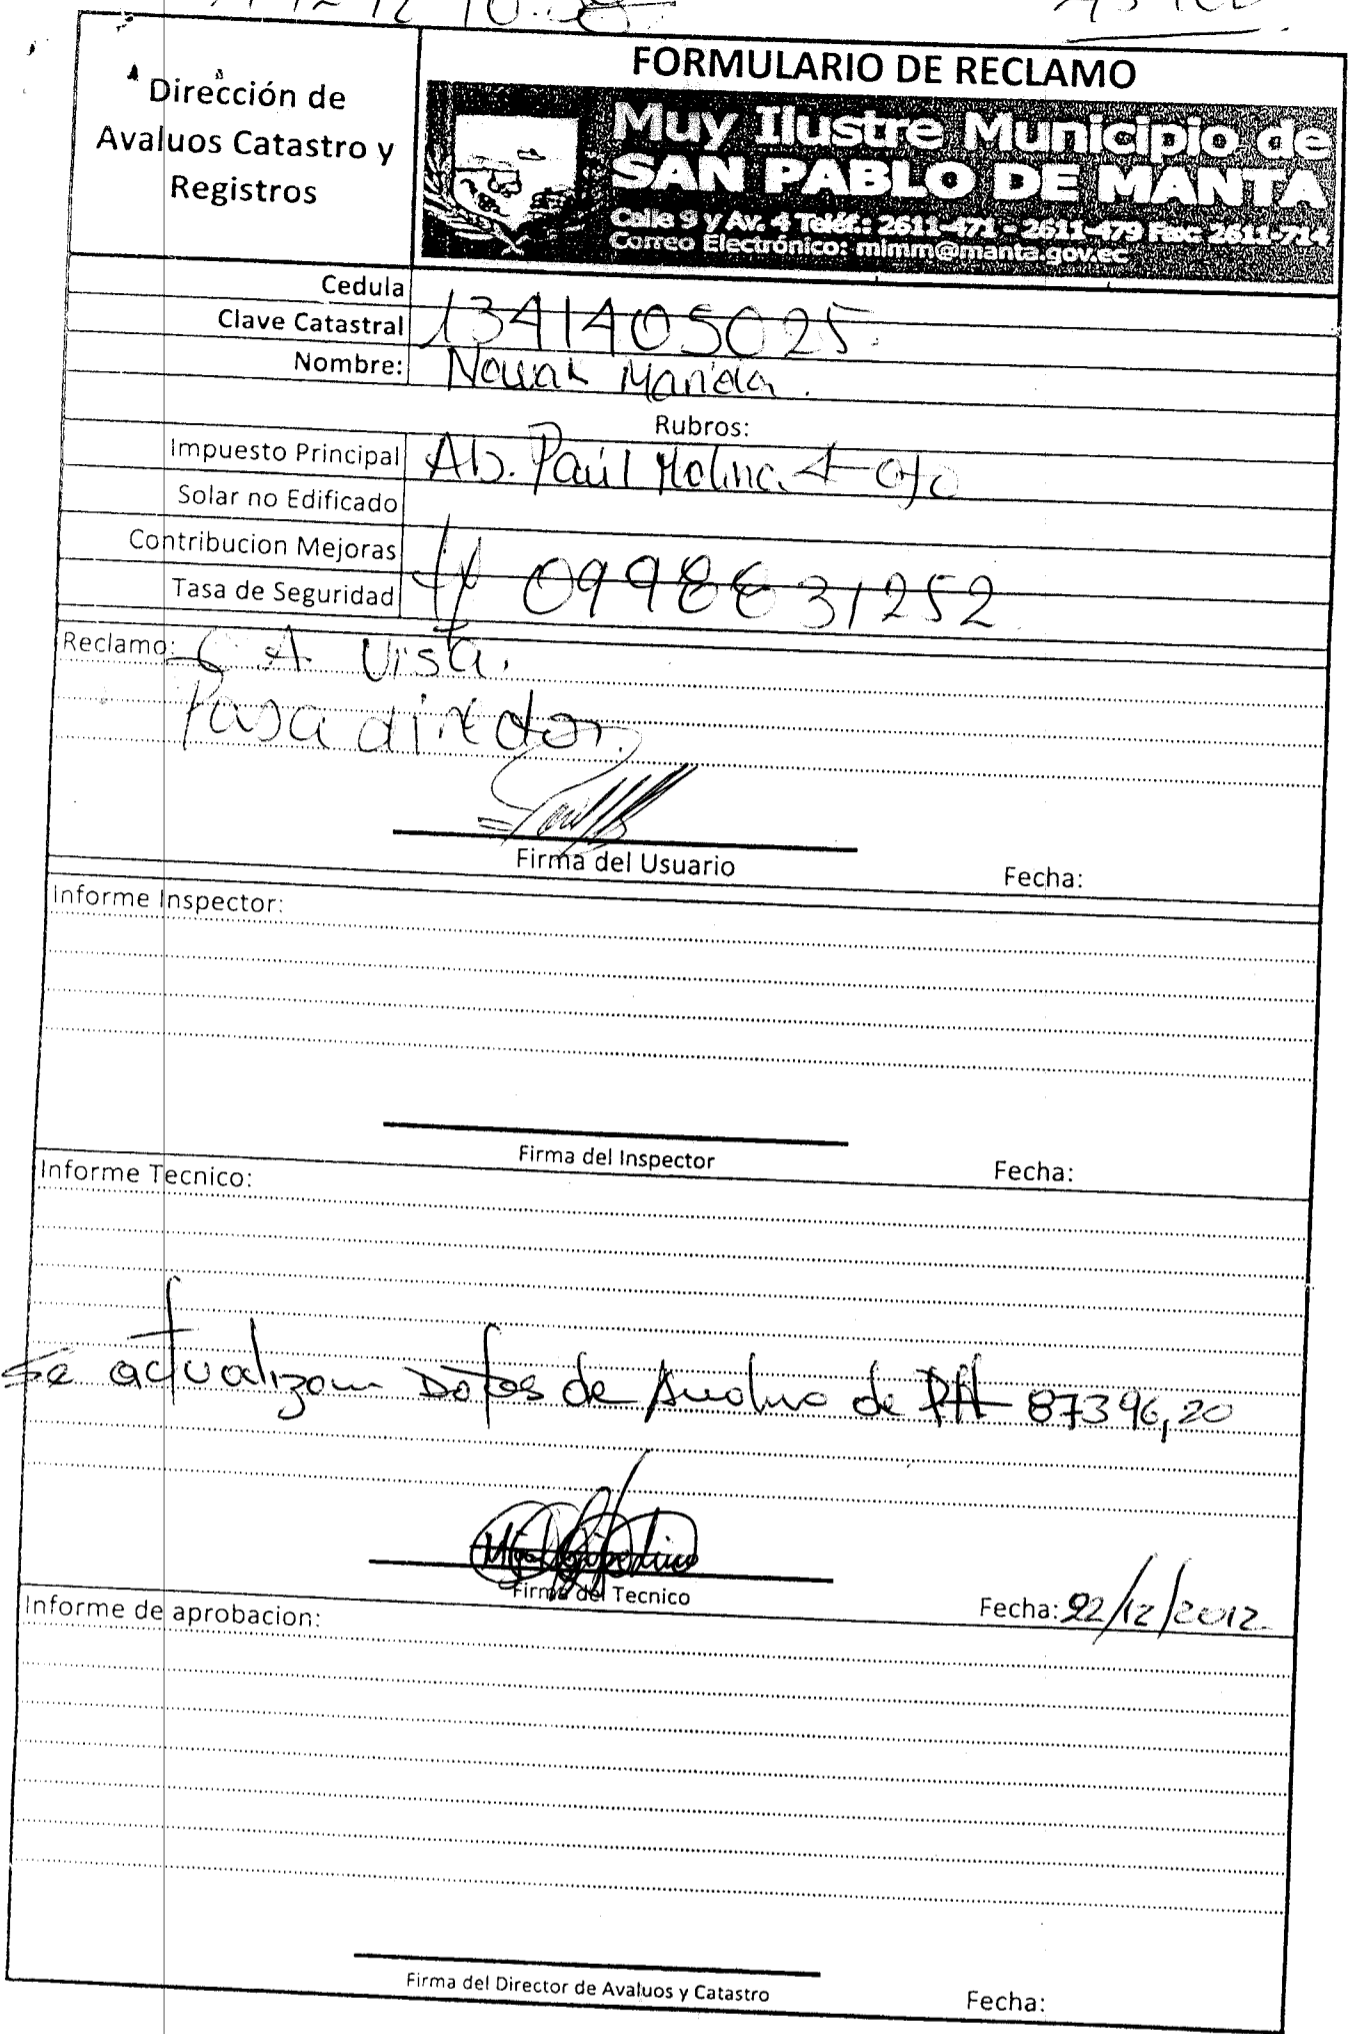 FORMULARIO DE RECLAMO
Dirección de
Avaluos Catastro y
Registros
Muy Ilustre Municipio de
SAN PABLO DE MANTA
Calle 9 y Av. 4 Teléf.: 2611-471 - 2611-479 Fax: 2611-714
Correo Electrónico: mimm@manta.gov.ec
Cedula
Clave Catastral 1341405025
Nombre:
Rubros:
Impuesto Principal Ab. Paúl Molina
Solar no Edificado
Contribucion Mejoras
Tasa de Seguridad 0998631252
Reclamo: A Vista.
Pasa director.
Firma del Usuario Fecha:
Informe Inspector:
Firma del Inspector Fecha:
Informe Tecnico:
Se actualizan Datos de Avaluo de 87396,20
Firma del Tecnico Fecha: 22/12/2012
Informe de aprobacion:
Firma del Director de Avaluos y Catastro Fecha: